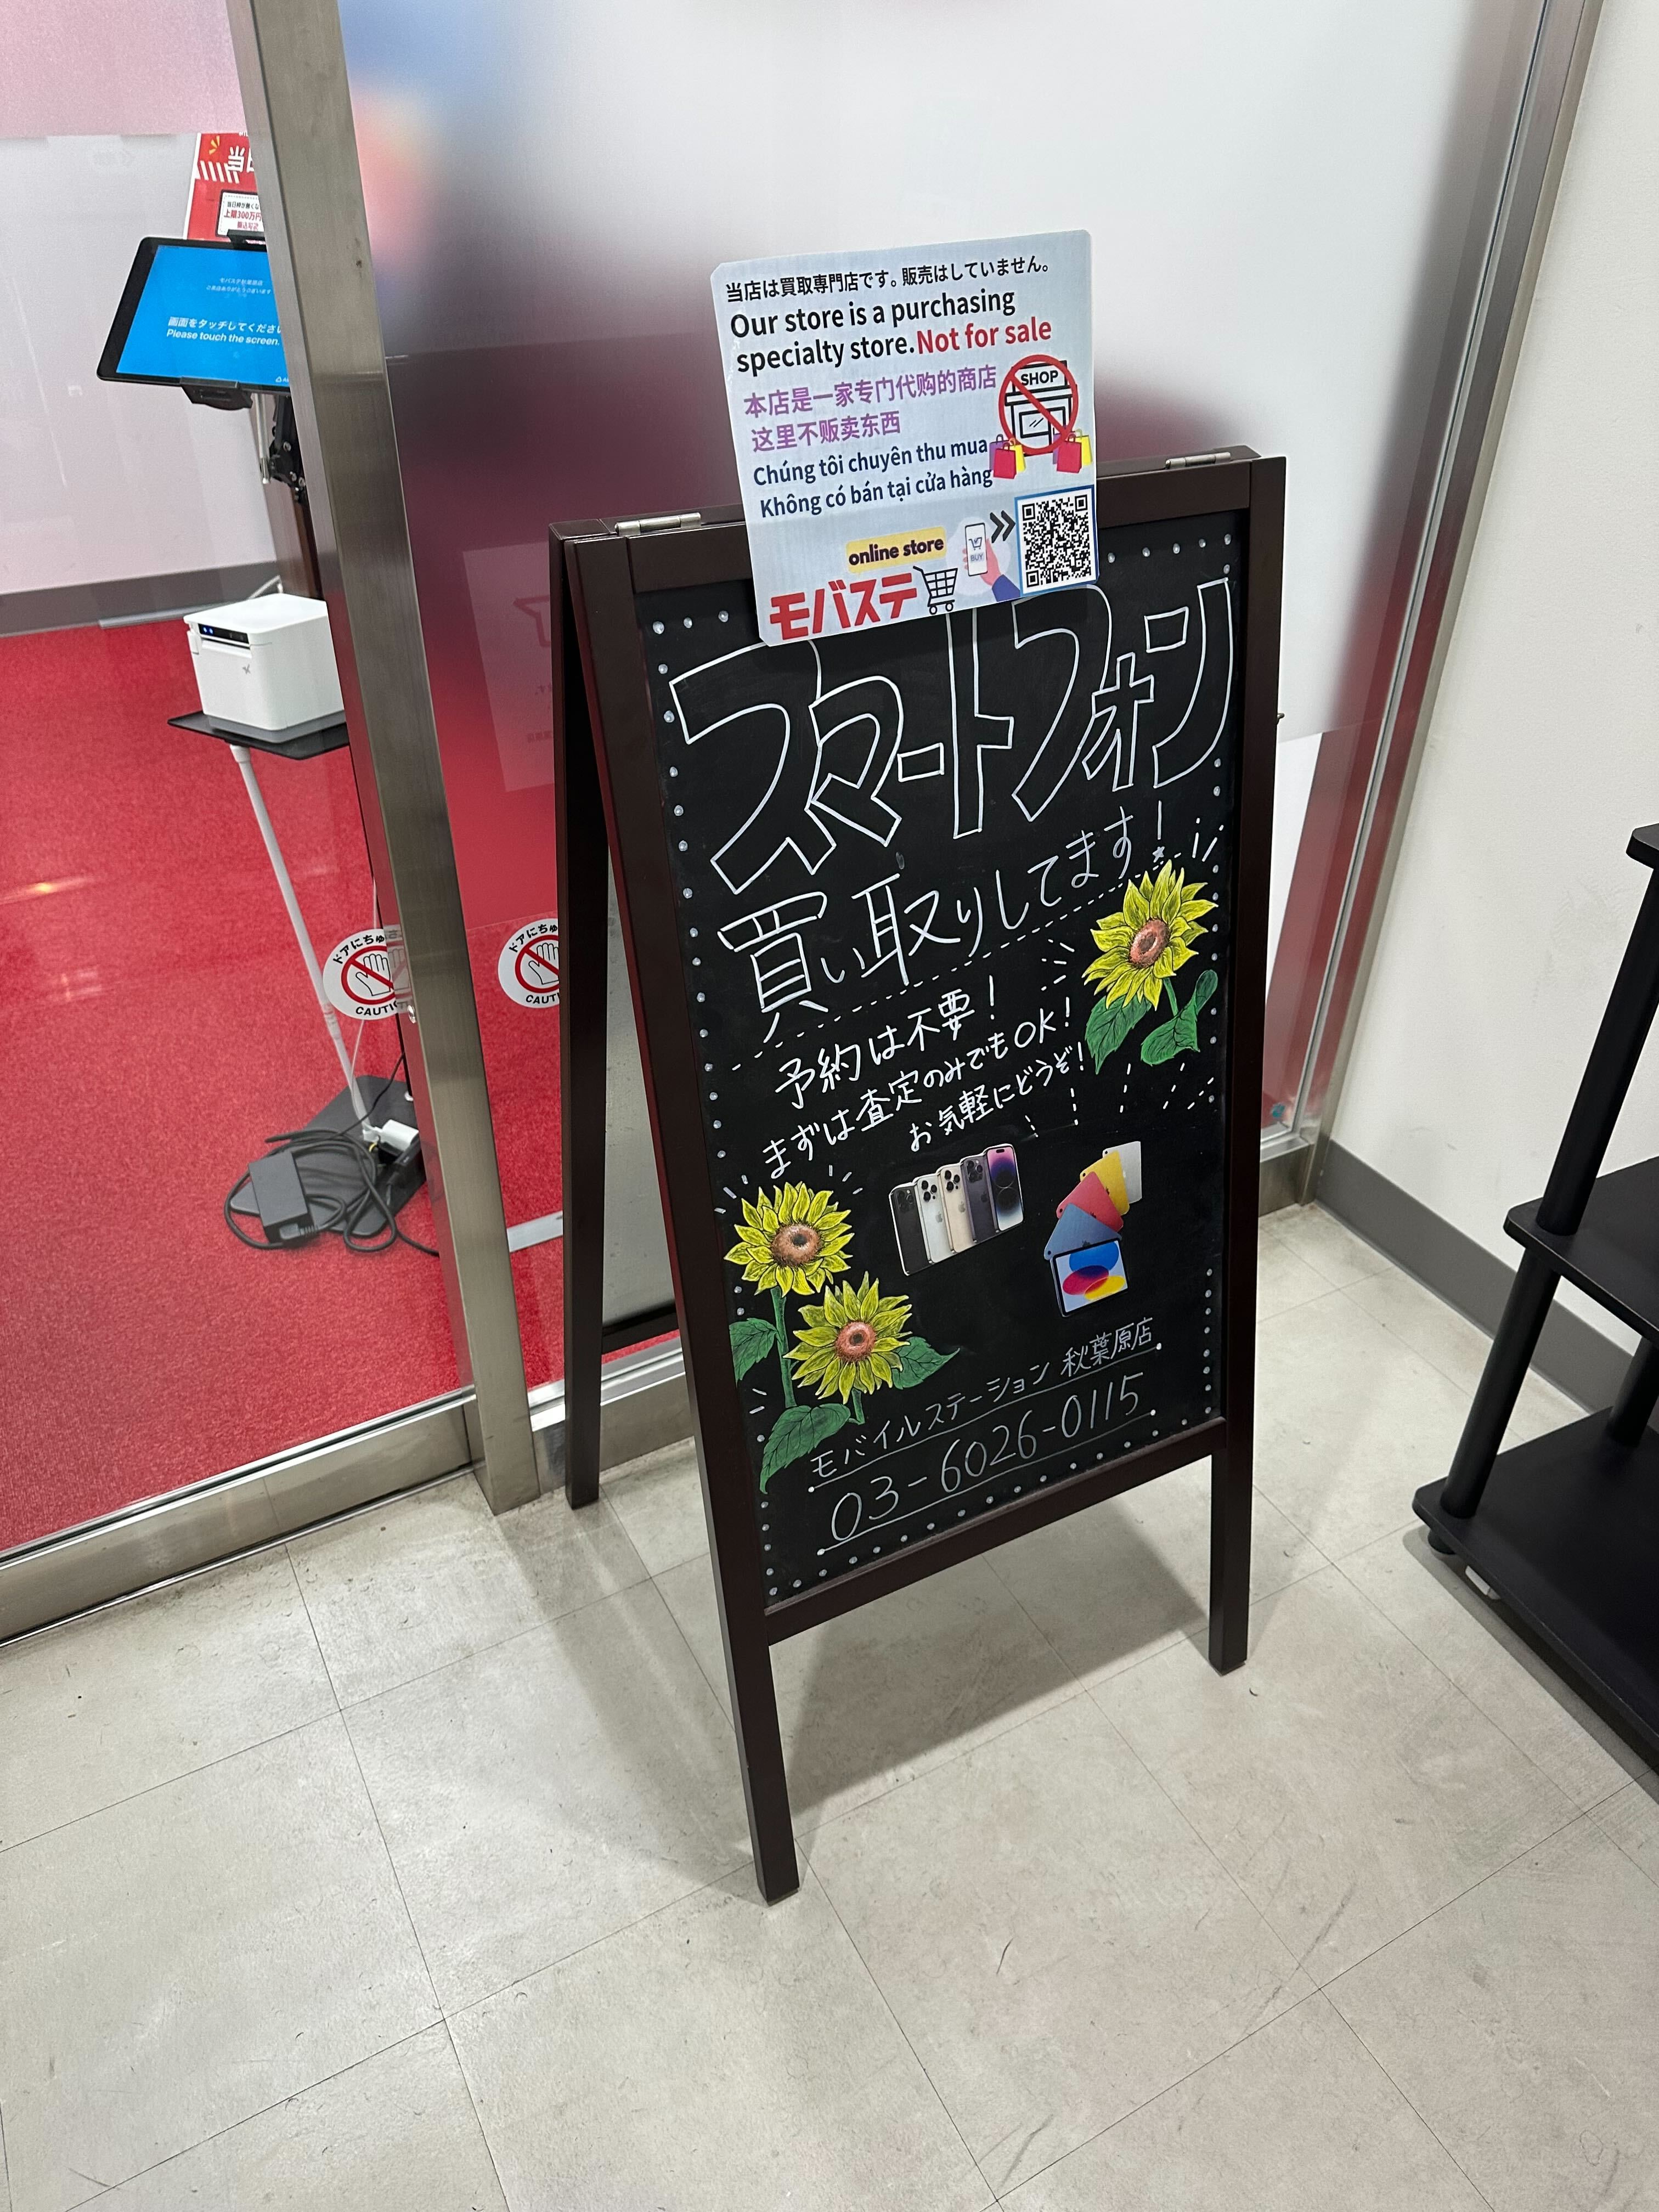 当店は買取専門店です。販売はしていません。
Our store is a purchasing
specialty store.Not for sale
本店是一家专门代购的商店
这里不贩卖东西
SHOP
Chúng tôi chuyên thu mua
Không có bán tại cửa hàng
online store
BUY
モバステ
スマートフォン
買い取りしてます!
予約は不要!
まずは査定のみでもOK!
お気軽にどうぞ!
モバイルステーション 秋葉原店
03-6026-0115
上限300万円
画面をタッチしてくださ
Please touch the screen.
ドアにちゅ
CAUTI
ドアにちゅ
CAUT